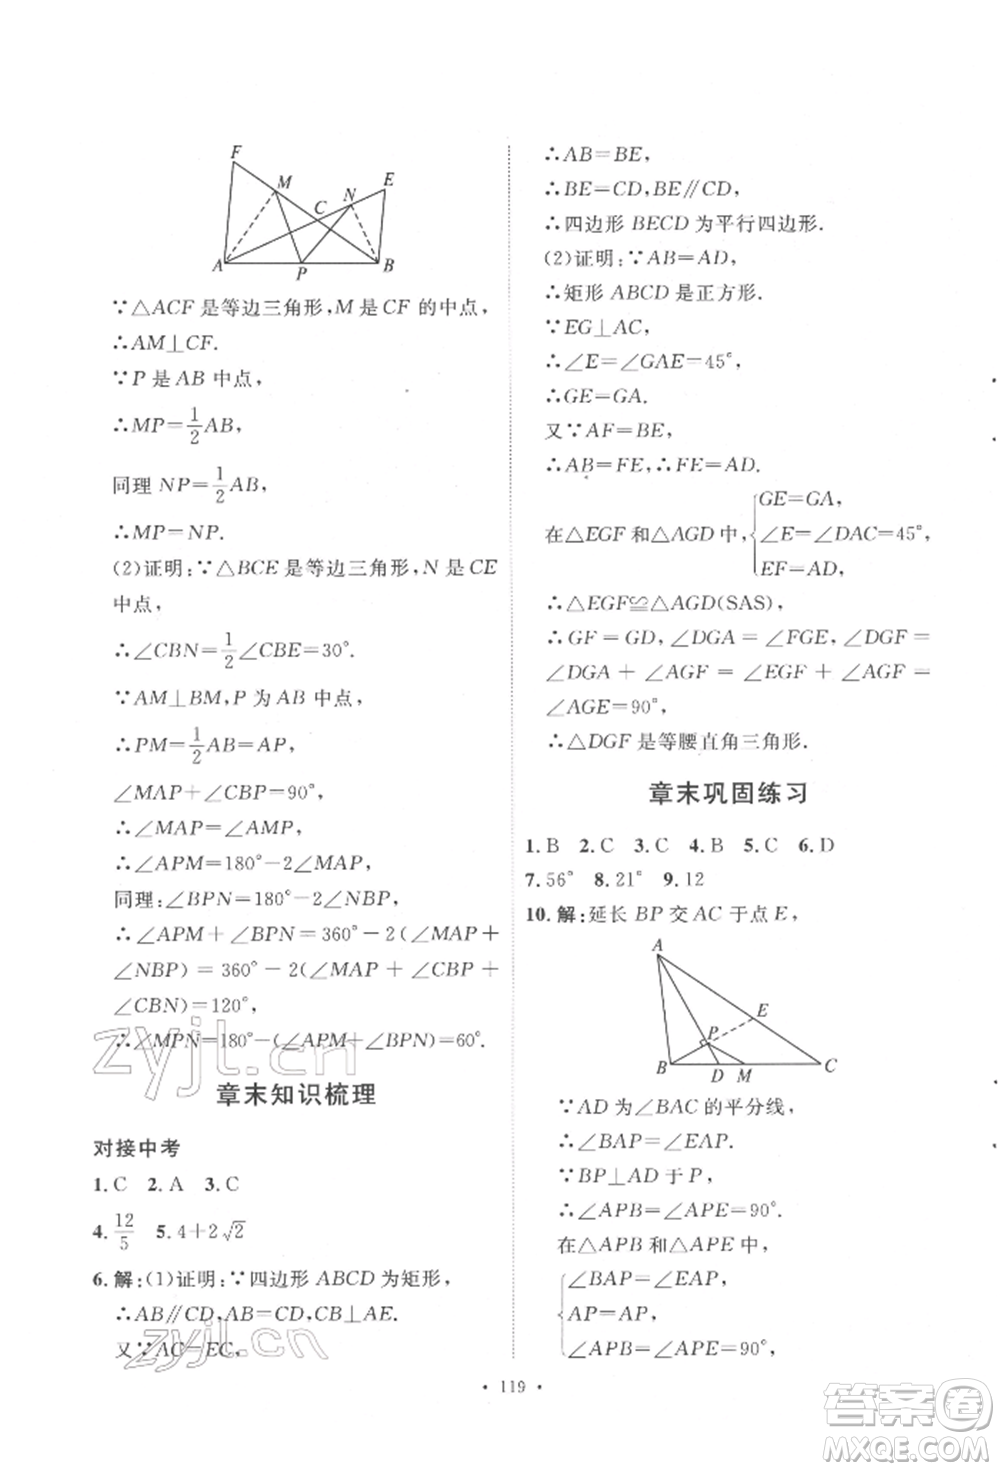 F
M
E
N
C
A
P
B
∵△ACF是等边三角形,M是CF的中点,
∴AM⊥CF.
∵P是AB中点,
∴MP=1/2AB,
同理NP=1/2AB,
∴MP=NP.
(2)证明:∵△BCE是等边三角形,N是CE
中点,
∴∠CBN=1/2∠CBE=30°.
∵AM⊥BM,P为AB中点,
∴PM=1/2AB=AP,
∠MAP+∠CBP=90°,
∴∠MAP=∠AMP,
∴∠APM=180°-2∠MAP,
同理:∠BPN=180°-2∠NBP,
∴∠APM+∠BPN=360°-2(∠MAP+
∠NBP)=360°-2(∠MAP+∠CBP+
∠CBN)=120°,
∴∠MPN=180°-(∠APM+∠BPN)=60°.
章末知识梳理
对接中考
1.C 2.A 3.C
4.12/5 5.4+2√2
6.解:(1)证明:∵四边形ABCD为矩形,
∴AB∥CD,AB=CD,CB⊥AE.
又∵AC=EC,
∴AB=BE,
∴BE=CD,BE∥CD,
∴四边形BECD为平行四边形.
(2)证明:∵AB=AD,
∴矩形ABCD是正方形.
∵EG⊥AC,
∴∠E=∠GAE=45°,
∴GE=GA.
又∵AF=BE,
∴AB=FE,∴FE=AD.
在△EGF和△AGD中,{GE=GA,
∠E=∠DAC=45°,
EF=AD,
∴△EGF≌△AGD(SAS),
∴GF=GD,∠DGA=∠FGE,∠DGF=
∠DGA+∠AGF=∠EGF+∠AGF=
∠AGE=90°,
∴△DGF是等腰直角三角形.
章末巩固练习
1.B 2.C 3.C 4.B 5.C 6.D
7.56° 8.21° 9.12
10.解:延长BP交AC于点E,
A
E
P
B
D
M
C
∵AD为∠BAC的平分线,
∴∠BAP=∠EAP.
∵BP⊥AD于P,
∴∠APB=∠APE=90°.
在△APB和△APE中,
{∠BAP=∠EAP,
AP=AP,
∠APB=∠APE=90°,
• 119 •
zyjl.cn
zyjl.cn
答案圈
MXQE.COM